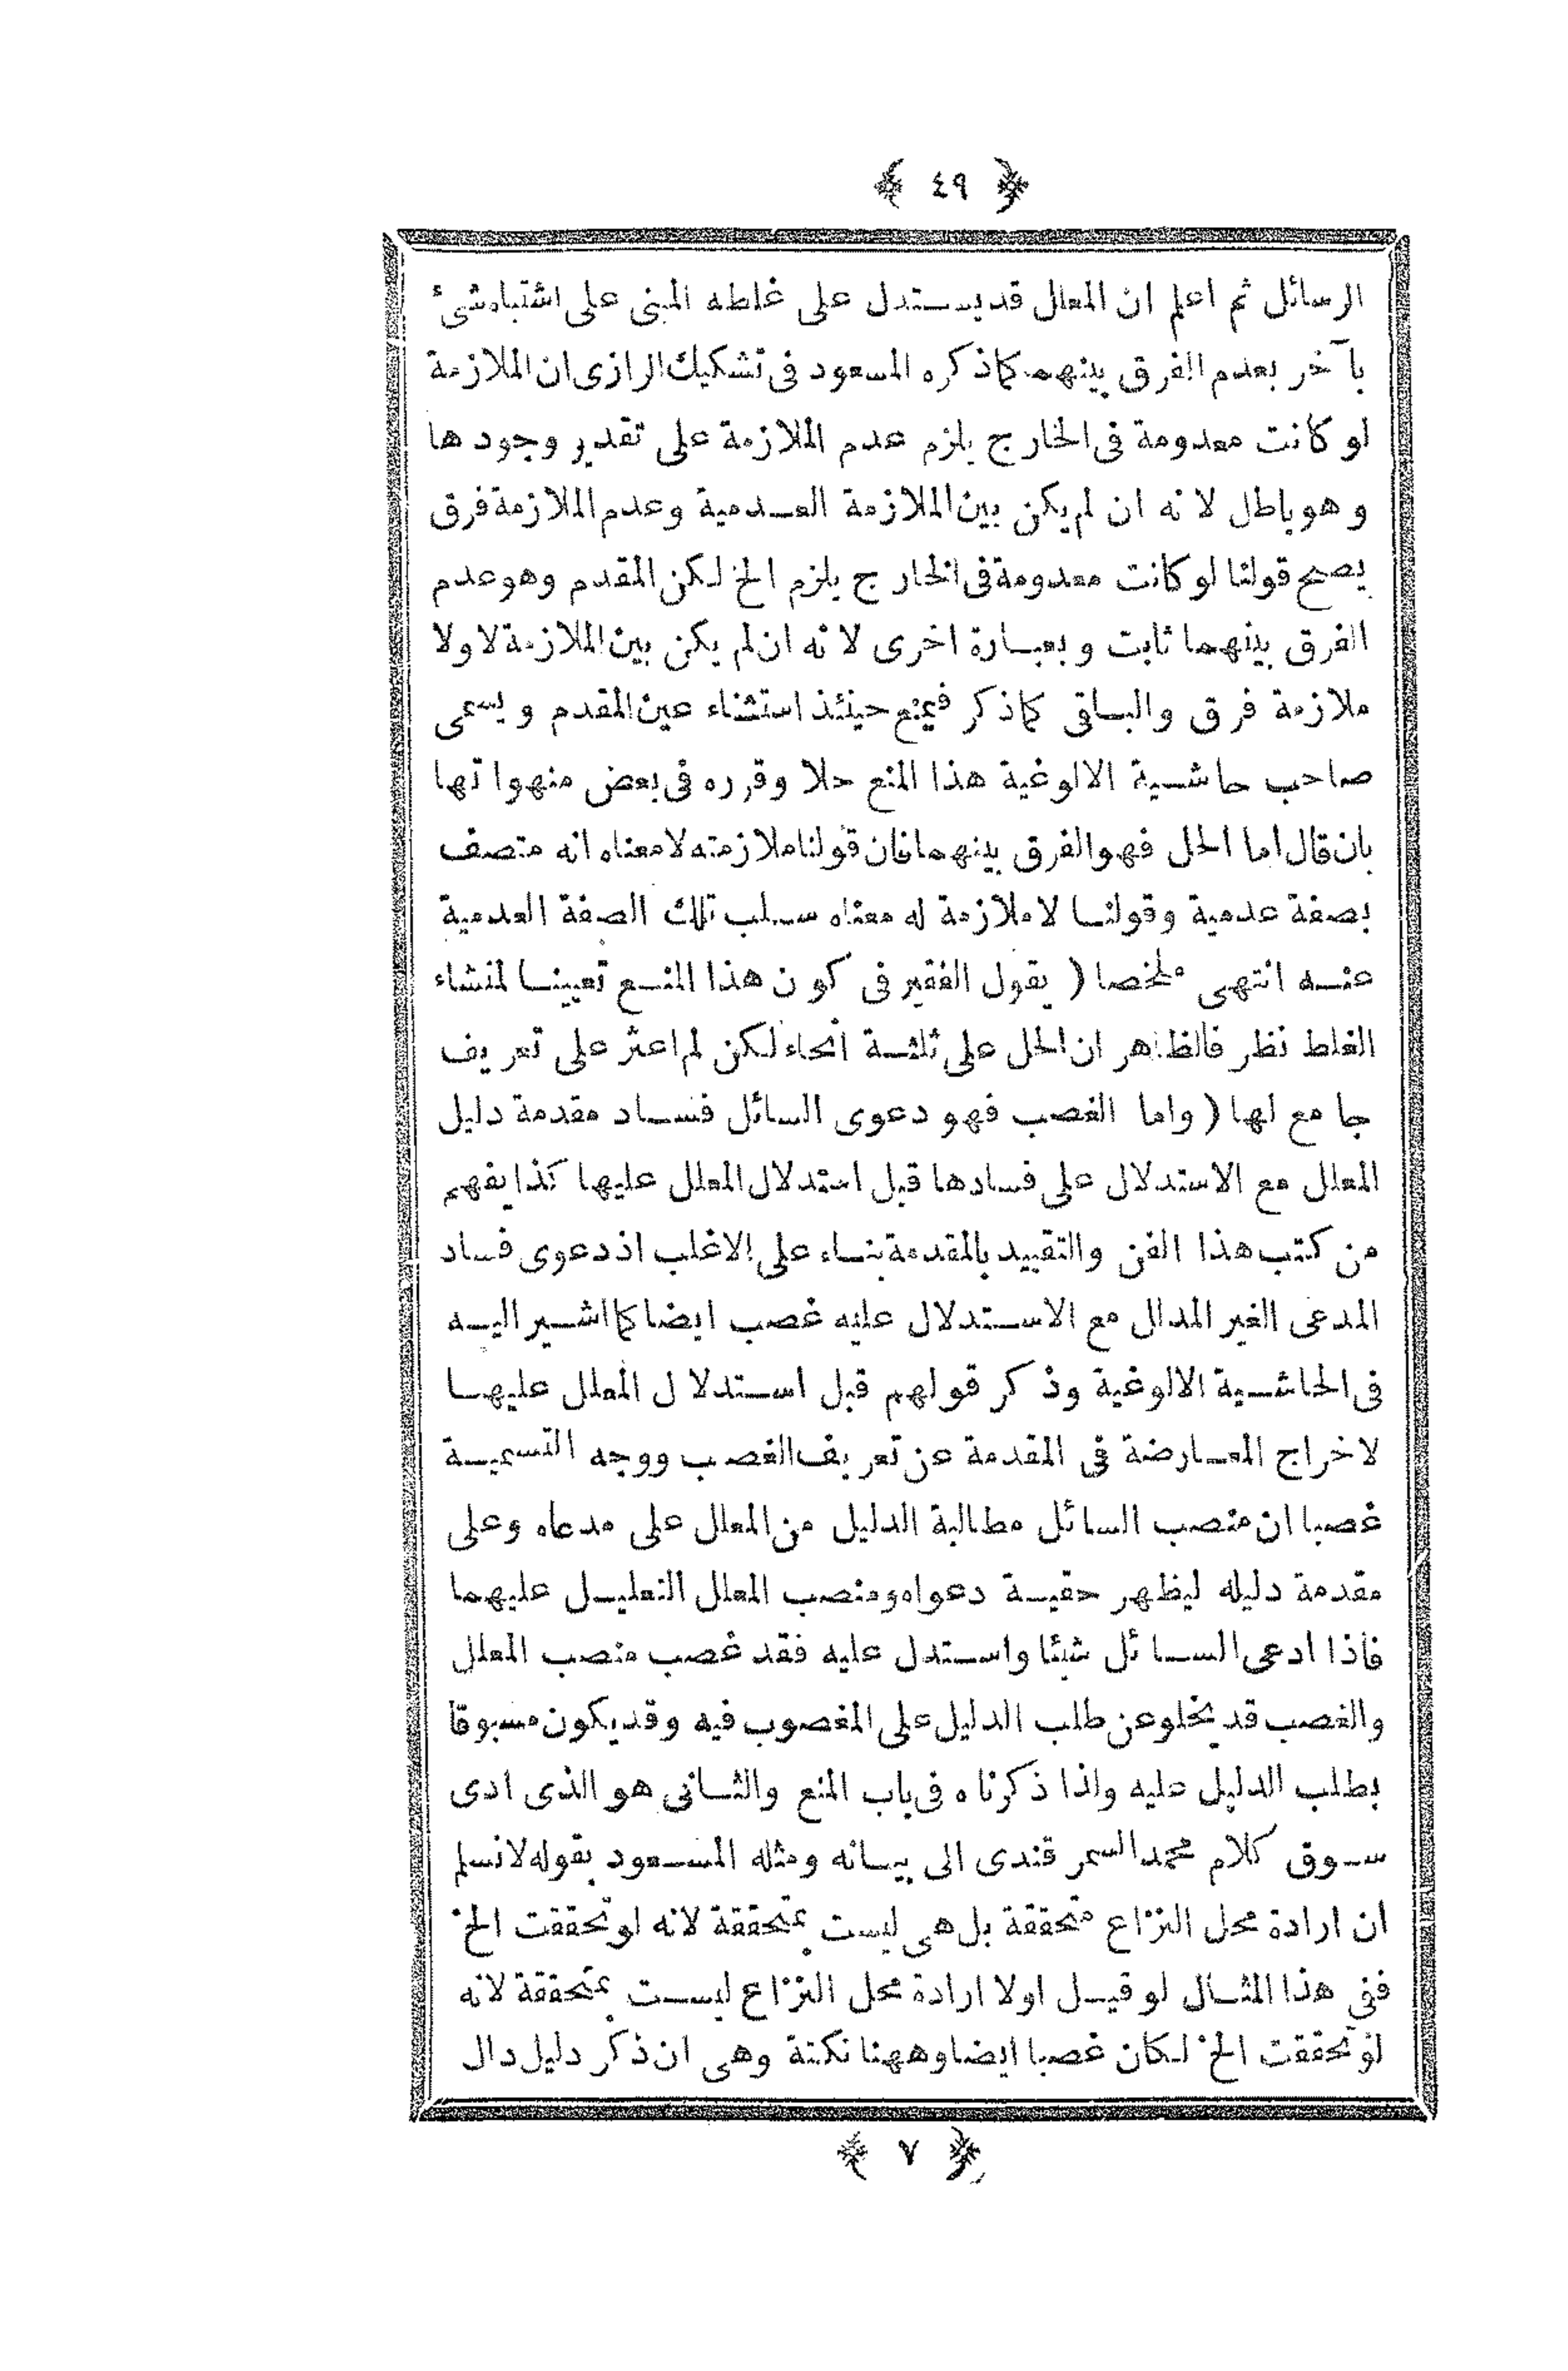 ﴿ ٤٩ ﴾
الرسائل ثم اعلم ان المعلل قد يستدل على غلطه المبنى على اشتباه شئ
بآخر بعدم الفرق بينهما كما ذكره المسعود فى تشكيك الرازى ان الملازمة
لو كانت معدومة فى الخارج يلزم عدم الملازمة على تقدير وجودها
وهو باطل لانه ان لم يكن بين الملازمة العدمية وعدم الملازمة فرق
يصح قولنا لو كانت معدومة فى الخارج يلزم الخ لكن المقدم وهو عدم
الفرق بينهما ثابت وبعبارة اخرى لانه ان لم يكن بين الملازمة لا ولا
ملازمة فرق والباقى كما ذكر فيمنع حينئذ استثناء عين المقدم ويسمى
صاحب حاشية الالوغية هذا المنع حلا وقرره فى بعض منهواتها
بان قال اما الحل فهو الفرق بينهما فان قولنا ملازمته لا معناه انه متصف
بصفة عدمية وقولنا لا ملازمة له معناه سلب تلك الصفة العدمية
عنه انتهى ملخصا ( يقول الفقير فى كون هذا المنع تعيينا لمنشاء
الغلط نظر فالظاهر ان الحل على ثلثة انحاء لكن لم اعثر على تعريف
جامع لها ( واما الغصب فهو دعوى السائل فساد مقدمة دليل
المعلل مع الاستدلال على فسادها قبل استدلال المعلل عليها كذا يفهم
من كتب هذا الفن والتقييد بالمقدمة بناء على الاغلب اذ دعوى فساد
المدعى الغير المدلل مع الاستدلال عليه غصب ايضا كما اشير اليه
فى الحاشية الالوغية وذكر قولهم قبل استدلال المعلل عليها
لاخراج المعارضة فى المقدمة عن تعريف الغصب ووجه التسمية
غصبا ان منصب السائل مطالبة الدليل من المعلل على مدعاه وعلى
مقدمة دليله ليظهر حقية دعواه ومنصب المعلل التعليل عليهما
فاذا ادعى السائل شيئا واستدل عليه فقد غصب منصب المعلل
والغصب قد يخلو عن طلب الدليل على المغصوب فيه وقد يكون مسبوقا
بطلب الدليل عليه ولذا ذكرناه فى باب المنع والثانى هو الذى ادى
سوق كلام محمد السمرقندى الى بيانه ومثله المسعود بقوله لا نسلم
ان ارادة محل النزاع متحققة بل هى ليست بمتحققة لانه لو تحققت الخ
ففى هذا المثال لو قيل اولا ارادة محل النزاع ليست بمتحققة لانه
لو تحققت الخ لكان غصبا ايضا وههنا نكتة وهى ان ذكر دليل دال
﴿ ٧ ﴾